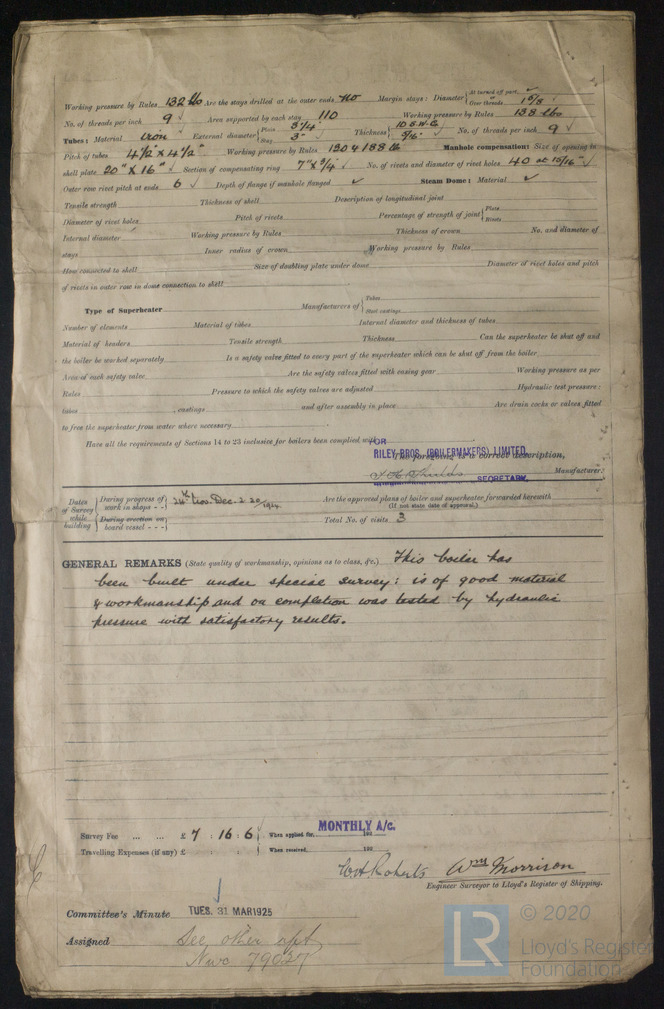 Working pressure by Rules 132 lbs Are the stays drilled at the outer ends No Margin stays: Diameter { At turned off part, ✓ Over threads 1 5/8
No. of threads per inch 9 ✓ Area supported by each stay 110 Working pressure by Rules 138 lbs
Tubes: Material Iron External diameter { Plain 3 1/4" Stay 3" Thickness { 10 S.W.G. 5/16" No. of threads per inch 9 ✓
Pitch of tubes 4 1/2" x 4 1/2" Working pressure by Rules 130 & 188 lb Manhole compensation: Size of opening in
shell plate 20" x 16" ✓ Section of compensating ring 7" x 3/4" ✓ No. of rivets and diameter of rivet holes 40 at 15/16" ✓
Outer row rivet pitch at ends 6 ✓ Depth of flange if manhole flanged ✓ Steam Dome: Material ✓
Tensile strength Thickness of shell Description of longitudinal joint
Diameter of rivet holes Pitch of rivets Percentage of strength of joint { Plate Rivets
Internal diameter Working pressure by Rules Thickness of crown No. and diameter of
stays Inner radius of crown Working pressure by Rules
How connected to shell Size of doubling plate under dome Diameter of rivet holes and pitch
of rivets in outer row in dome connection to shell
Type of Superheater Manufacturers of { Tubes Steel castings
Number of elements Material of tubes Internal diameter and thickness of tubes
Material of headers Tensile strength Thickness Can the superheater be shut off and
the boiler be worked separately Is a safety valve fitted to every part of the superheater which can be shut off from the boiler
Area of each safety valve Are the safety valves fitted with easing gear Working pressure as per
Rules Pressure to which the safety valves are adjusted Hydraulic test pressure:
tubes , castings and after assembly in place Are drain cocks or valves fitted
to free the superheater from water where necessary
Have all the requirements of Sections 14 to 23 inclusive for boilers been complied with
FOR
RILEY BROS. (BOILERMAKERS) LIMITED.
The foregoing is a correct description,
SECRETARY. Manufacturer.
Dates of Survey while building { During progress of work in shops - - } 24th Nov. Dec. 2. 20 1924 Are the approved plans of boiler and superheater forwarded herewith
(If not state date of approval.)
During erection on board vessel - - - Total No. of visits 3
GENERAL REMARKS (State quality of workmanship, opinions as to class, &c.) This boiler has
been built under special survey: is of good material
& workmanship and on completion was tested by hydraulic
pressure with satisfactory results.
Survey Fee ... ... £ 7 : 16 : 6 When applied for, MONTHLY A/c. 192
Travelling Expenses (if any) £ : : When received, 192
W.H. Roberts Wm Morrison
Engineer Surveyor to Lloyd's Register of Shipping.
Committee's Minute TUES. 31 MAR 1925
Assigned See other rpt
Nwc 79027
LR © 2020
Lloyd's Register
Foundation